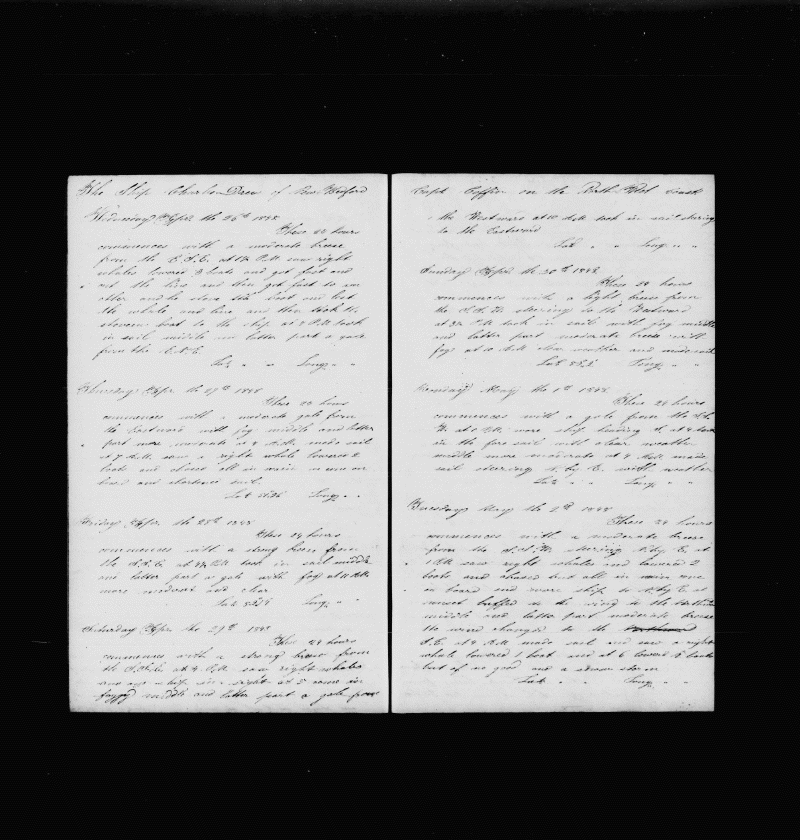 The Ship Charles Drew of New Bedford
Wednesday Apr the 26th 1848
These 24 hours
commences with a moderate breeze
from the E.S.E. at 12 P.M. saw right
whales lowered 3 boats and got fast and
cut the line and then got fast to an
other and he stove boat and lost
the whale and line and then took the
stoven boat to the ship at 7 P.M. took
in sail middle latter part a gale
from the E.N.E.
Lat " " Long " "
Thursday Apr the 27th 1848
These 24 hours
commences with a moderate gale from
the Eastward with fog middle and latter
part more moderate at 4 A.M. made sail
at 7 A.M. saw a right whale lowered 2
boats and chased all in vain came on
board and shortened sail
Lat Long " "
Friday Apr the 28th 1848
These 24 hours
commences with a strong breeze from
the S.S.E. at took in sail middle
and latter part a gale with fog at 10 A.M.
more moderate and clear
Lat Long " "
Saturday Apr the 29th 1848
These 24 hours
commences with a strong breeze from
the at P.M. saw right whales
and a ship in sight at 5 came in
foggy middle and latter part a gale from
Capt Coffin on the North West
the Westward at 10 A.M. took in sail steering
to the Eastward
Lat " " Long " "
Sunday Apr the 30th 1848
These 24 hours
commences with a light breeze from
the steering to the Westward
at P.M. took in sail with fog middle
and latter part moderate breeze with
fog at 10 A.M. clear weather and moderate
Lat Long " "
Monday May the 1st 1848
These 24 hours
commences with a gale from the
at P.M. wore ship heading at took
in the fore sail with clear weather
middle more moderate at 4 A.M. made
sail steering N. by E. with weather
Lat " Long " "
Tuesday May the 2nd 1848
These 24 hours
commences with a moderate breeze
from the steering N. by E. at
1 P.M. saw right whales and lowered 2
boats and chased but all in vain came
on board and wore ship to N. by E. at
sunset luffed to the wind to the
middle and latter part moderate breeze
the wind changed to the
at 4 A.M. made sail and saw a right
whale lowered 1 boat and at 6 lowered boats
but of no good and a snow storm
Lat " " Long " "